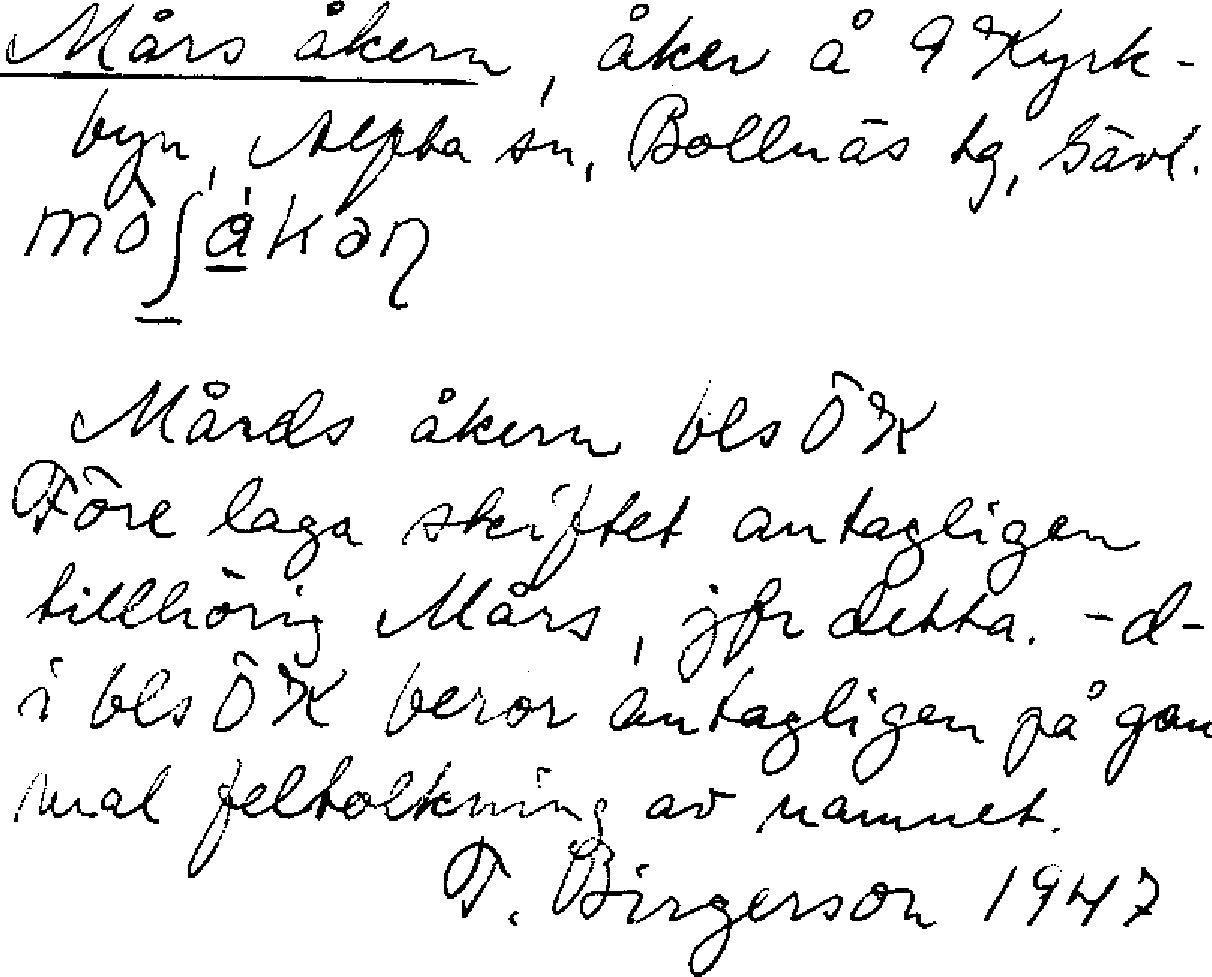 Mårs åkern, åker å 9 Kyrk-
byn, Alfta sn, Bollnäs tg, Gävl.
Mårds åkern bls ÖK
Före laga skiftet antagligen
tillhörig Mårs, jfr detta. -d-
i bls ÖK beror antagligen på gam
mal feltolkning av namnet.
T. Birgerson 1947